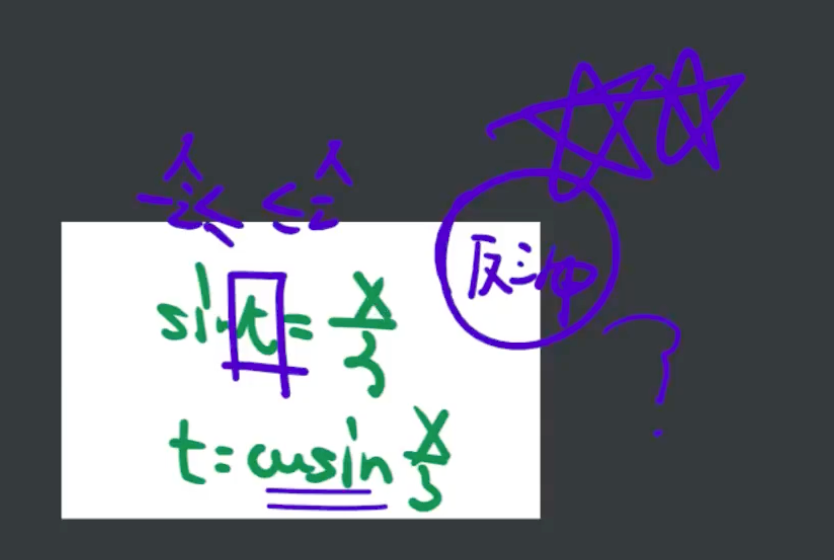 -π/2 ≤ ≤ π/2
sin t = x/3
t = arcsin x/3
?